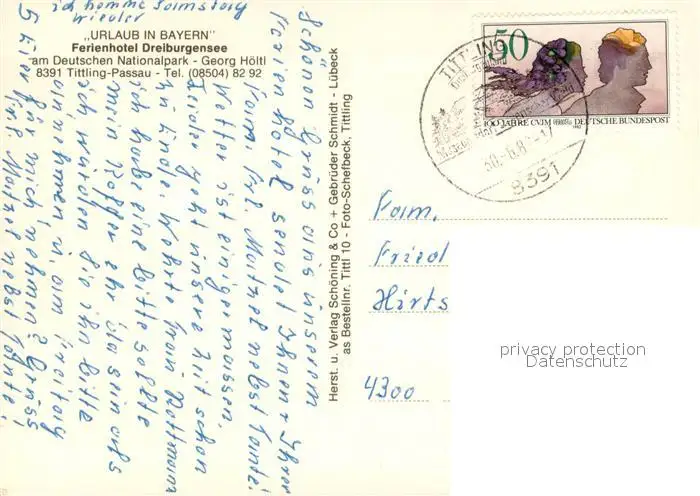 ich komme Samstag
wieder
„URLAUB IN BAYERN"
Ferienhotel Dreiburgensee
am Deutschen Nationalpark - Georg Höltl
8391 Tittling-Passau - Tel. (08504) 82 92
Schöne Grüße aus unserem
Ferienhotel sendet Ihnen + Ihrer
Fam. Frl. Matzel nebst Tante!
Wetter ist einigermassen,
leider geht unsere Zeit schon
zu Ende. Werte Frau
ich habe eine Bitte sollte
mein ehr da sein als
ich würden Sie ihn bitte
einnehmen, u. am Freitag
5 Eier für mich nehmen? Gruss
Frl. Matzel nebst Tante!
Herst. u. Verlag Schöning & Co + Gebrüder Schmidt - Lübeck
as Bestellnr. Tittl 10 - Foto-Schefbeck, Tittling
50
100 JAHRE CVJM DEUTSCHE BUNDESPOST
TITTLING
8391
Fam.
Fried
Hirts
4300
privacy protection
Datenschutz